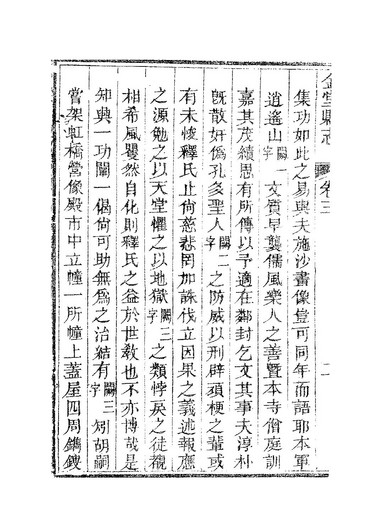 金堂縣志 卷三 二
集功如此之易與夫施沙畫像豈可同年而語耶本軍
逍遙山闕一字文質早襲儒風樂人之善暨本寺僧庭訓
嘉其茂績思有所傳以予適在鄰封乞文其事夫淳朴
旣散奸僞孔多聖人闕二字之防威以刑辟頑梗之輩或
有未悛釋氏止尙慈悲罔加誅伐立因果之義述報應
之源勉之以天堂懼之以地獄闕三字之類悖戾之徒覩
相希風矍然自化則釋氏之益於世敎也不亦博哉是
知典一功闡一偈尙可助無爲之治結有闕三字矧胡嗣
嘗架虹橋營像殿市中立幢一所幢上蓋屋四周鐫鏤